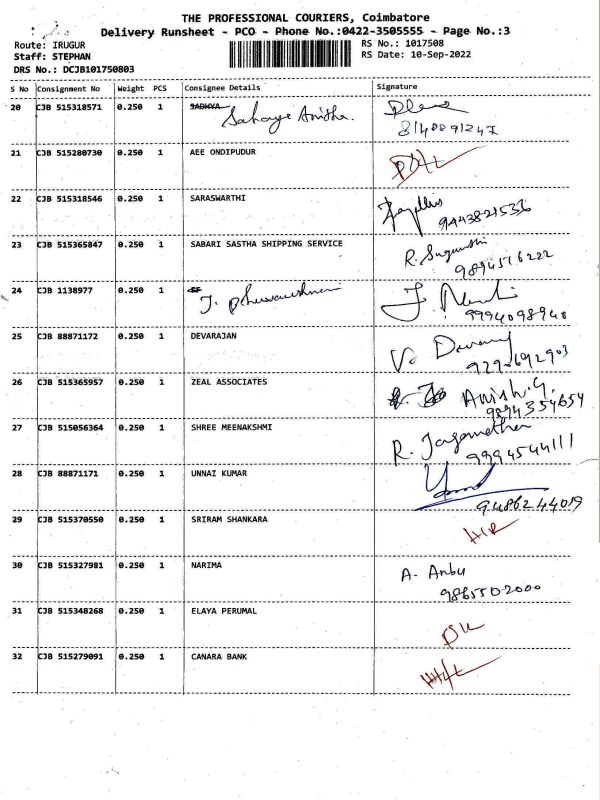 THE PROFESSIONAL COURIERS, Coimbatore
Delivery Runsheet - PCO - Phone No.:0422-3505555 - Page No.:3
Route: IRUGUR
RS No.: 1017508
Staff: STEPHAN
RS Date: 10-Sep-2022
DRS No.: DCJB101750803
S No Consignment No Weight PCS Consignee Details Signature
20 CJB 515318571 0.250 1 SADHYA
Sahaya Anitha.
8140091247
21 CJB 515280730 0.250 1 AEE ONDIPUDUR
22 CJB 515318546 0.250 1 SARASWARTHI
9443821536
23 CJB 515365847 0.250 1 SABARI SASTHA SHIPPING SERVICE
R. Suganthi
9894516222
24 CJB 1138977 0.250 1
J.
9994098940
25 CJB 88871172 0.250 1 DEVARAJAN
9290692903
26 CJB 515365957 0.250 1 ZEAL ASSOCIATES
Anish.G.
9894354654
27 CJB 515056364 0.250 1 SHREE MEENAKSHMI
R. Jaganathan
9994544111
28 CJB 88871171 0.250 1 UNNAI KUMAR
9486244019
29 CJB 515370550 0.250 1 SRIRAM SHANKARA
30 CJB 515327981 0.250 1 NARIMA
A. Anbu
9865502000
31 CJB 515348268 0.250 1 ELAYA PERUMAL
32 CJB 515279091 0.250 1 CANARA BANK